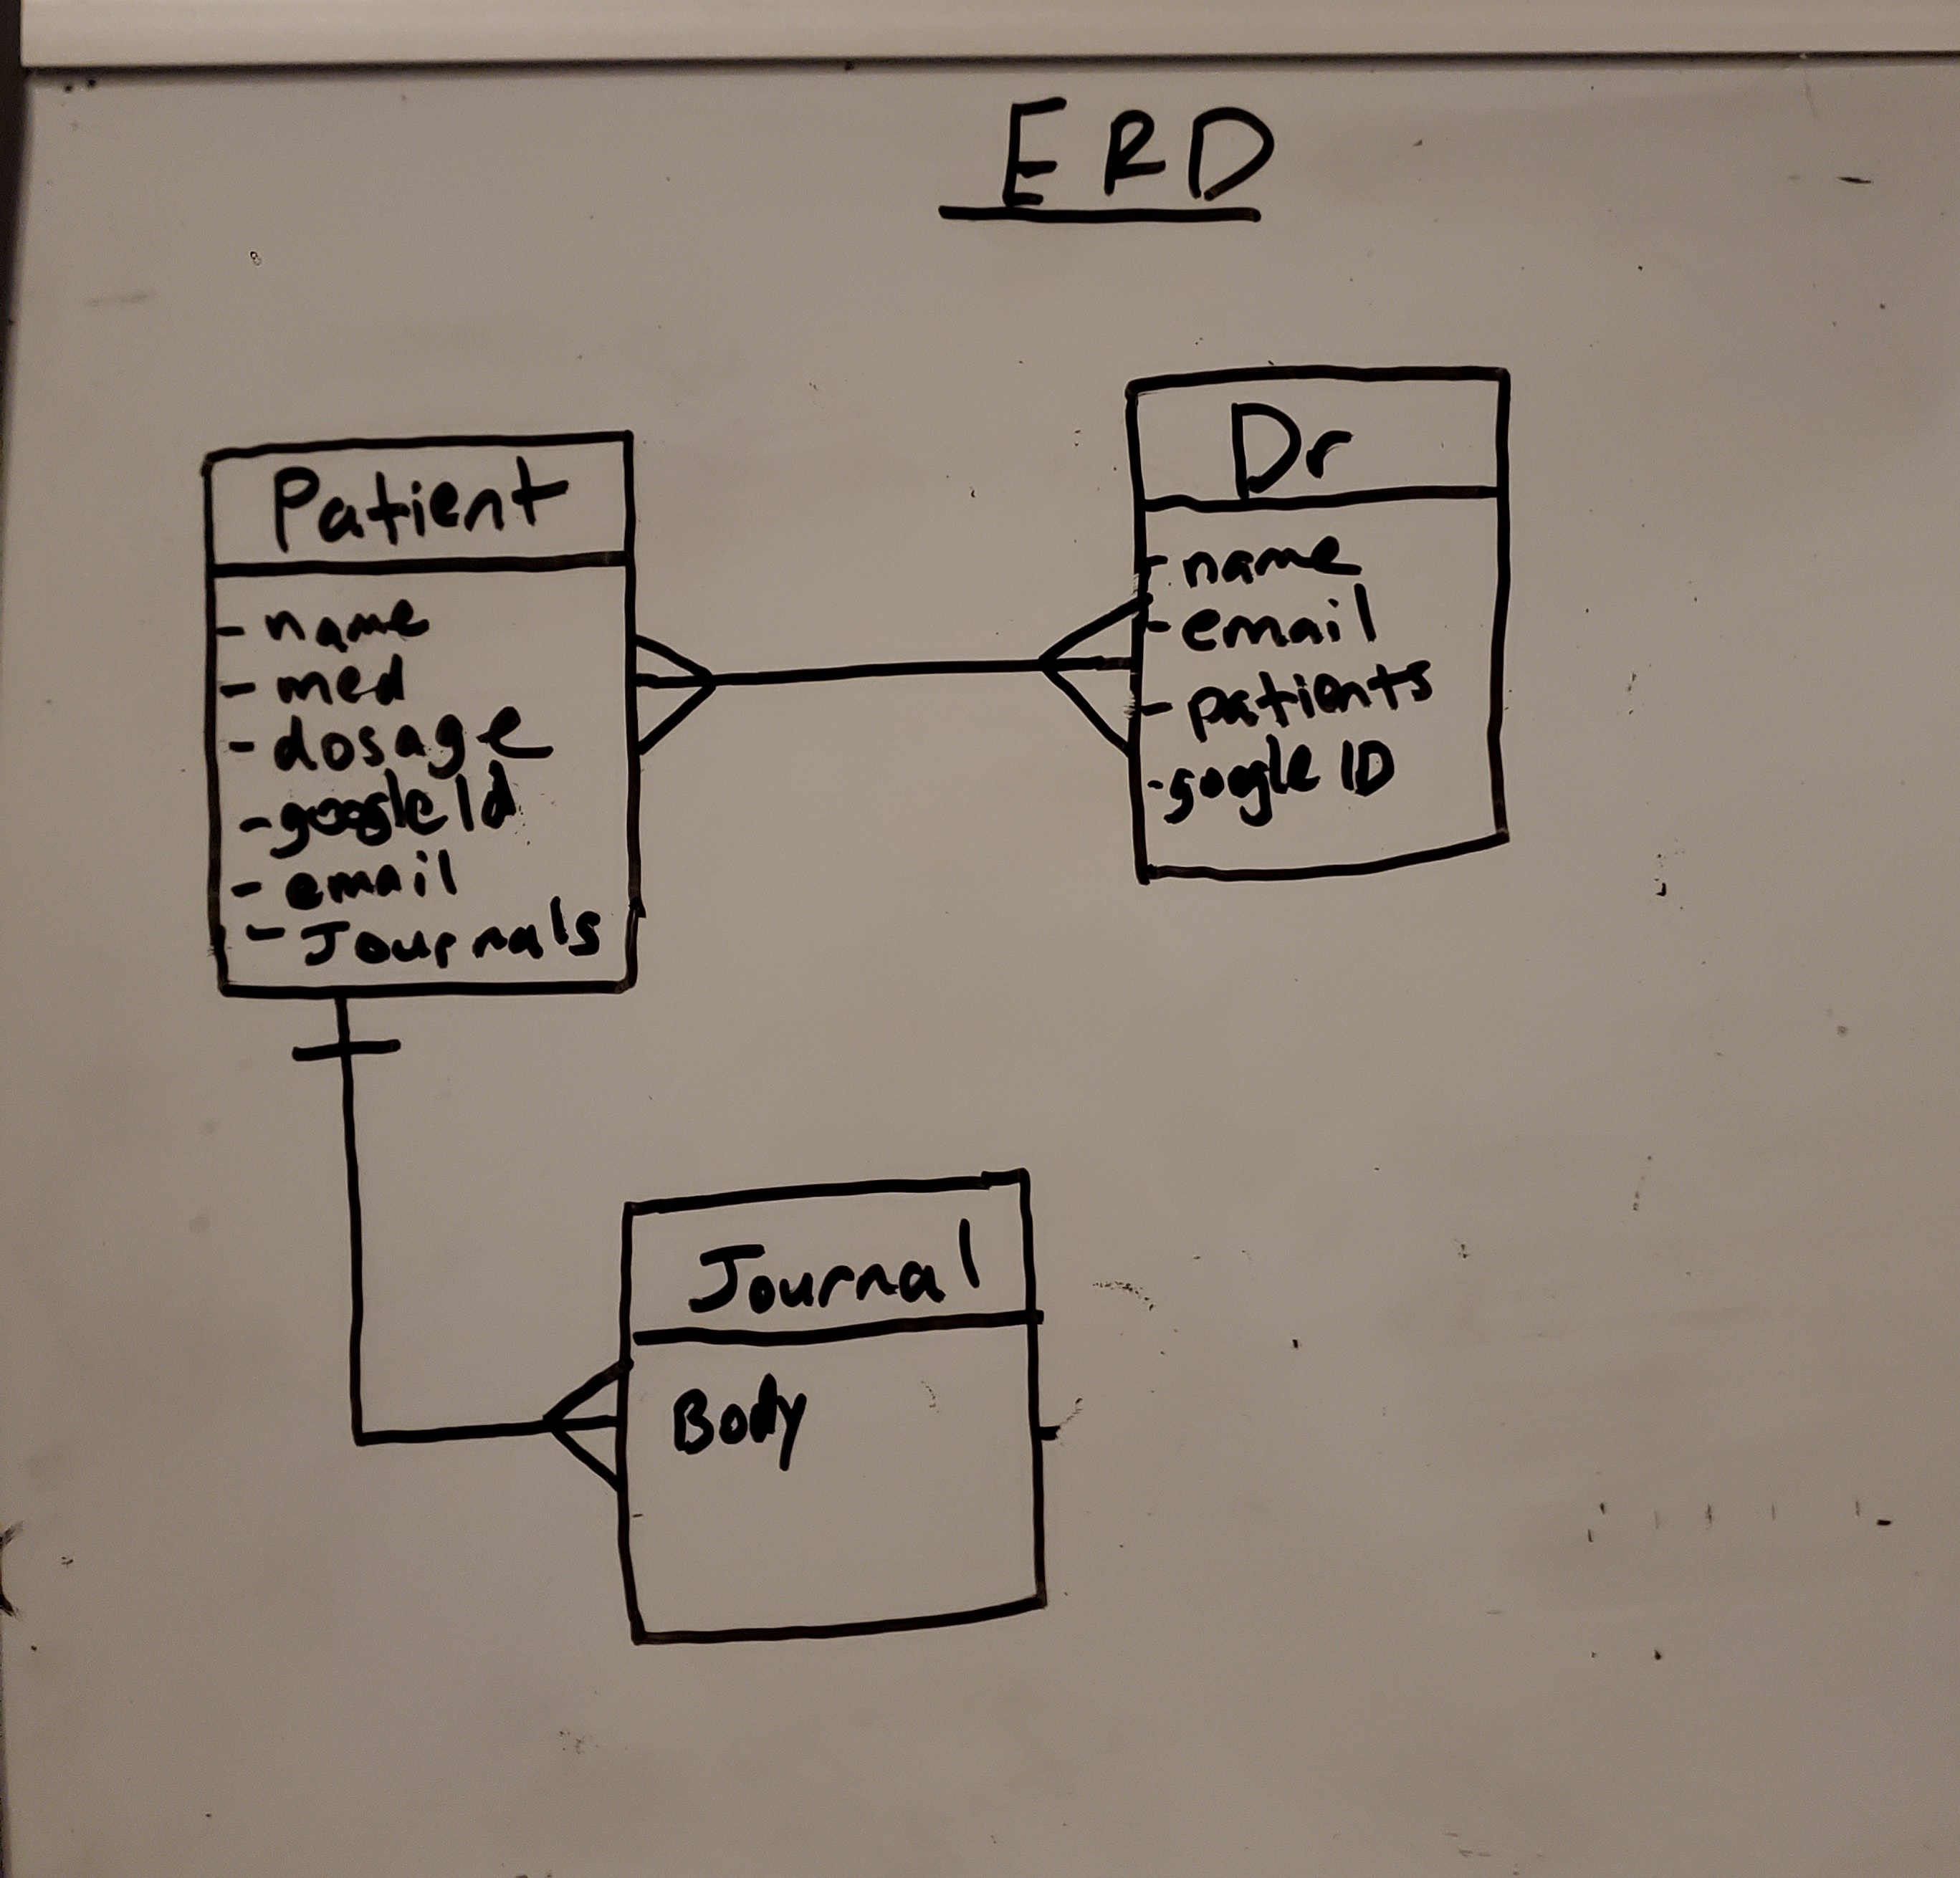 ERD
Patient
- name
- med
- dosage
- googleId
- email
- Journals
Dr
- name
- email
- patients
- google ID
Journal
Body